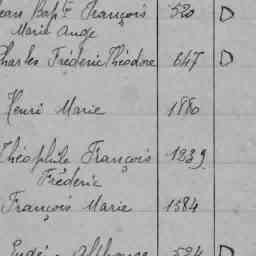 Jean Bapte François 520 D
Marie Ange
Charles Fréderic Théodore 647 D
Henri Marie 1880
Théophile François 1239
Fréderic
François Marie 1584
Alphonse 524 D